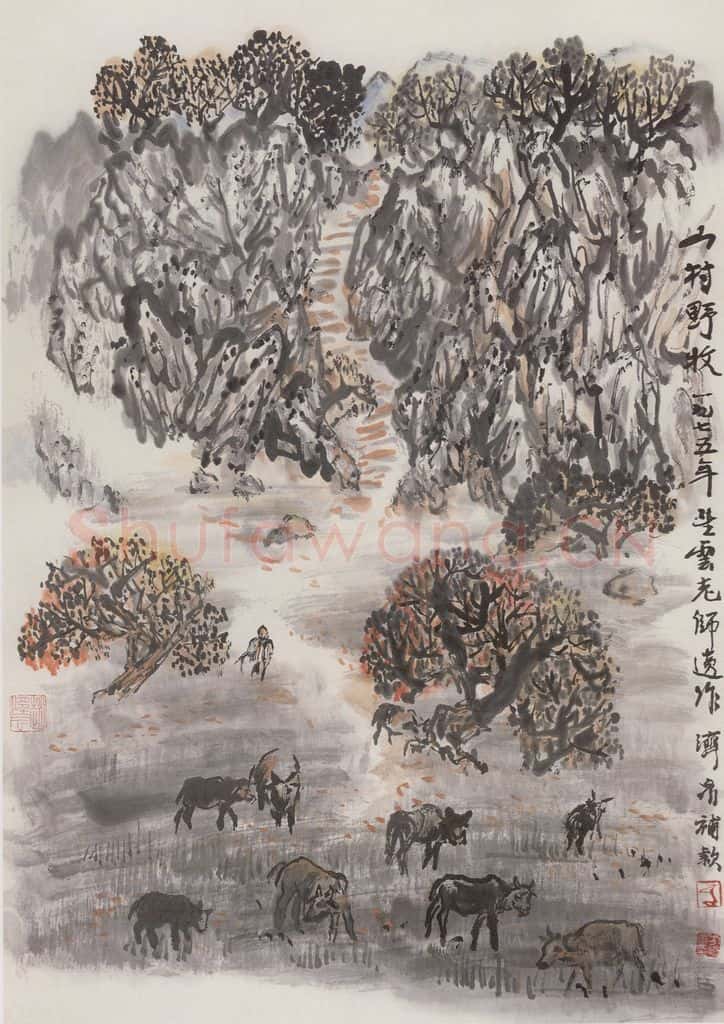 山村野牧 一九七五年 望雲老師遺作 濟眾補款
Shufawang.CN